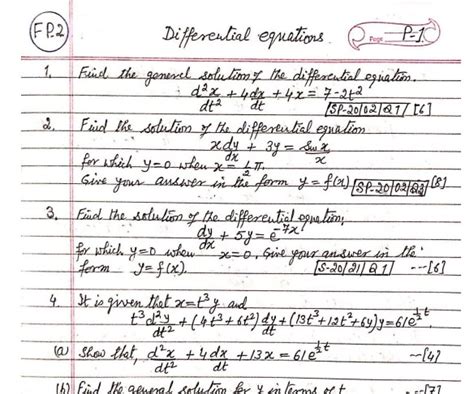 FP.2 Differential equations. Page P-1
1. Find the general solution of the differential equation.
d²x/dt² + 4dx/dt + 4x = 7-2t² [SP-20/02/Q1] [6]
2. Find the solution of the differential equation
x dy/dx + 3y = Sin x/x
for which y=0 when x = ½π.
Give your answer in the form y = f(x) [SP-20/02/Q3] [8]
3. Find the solution of the differential equation;
dy/dx + 5y = e^-7x
for which y=0 when x=0, Give your answer in the
form y=f(x). [S-20/21/Q1] --[6]
4. It is given that x=t³y and
t³d²y/dt² + (4t³+6t²)dy/dt + (13t³+12t²+6t)y = 61e^½t
(a) Show that, d²x/dt² + 4dx/dt + 13x = 61e^½t --[4]
(b) Find the general solution for y in terms of t --[7]